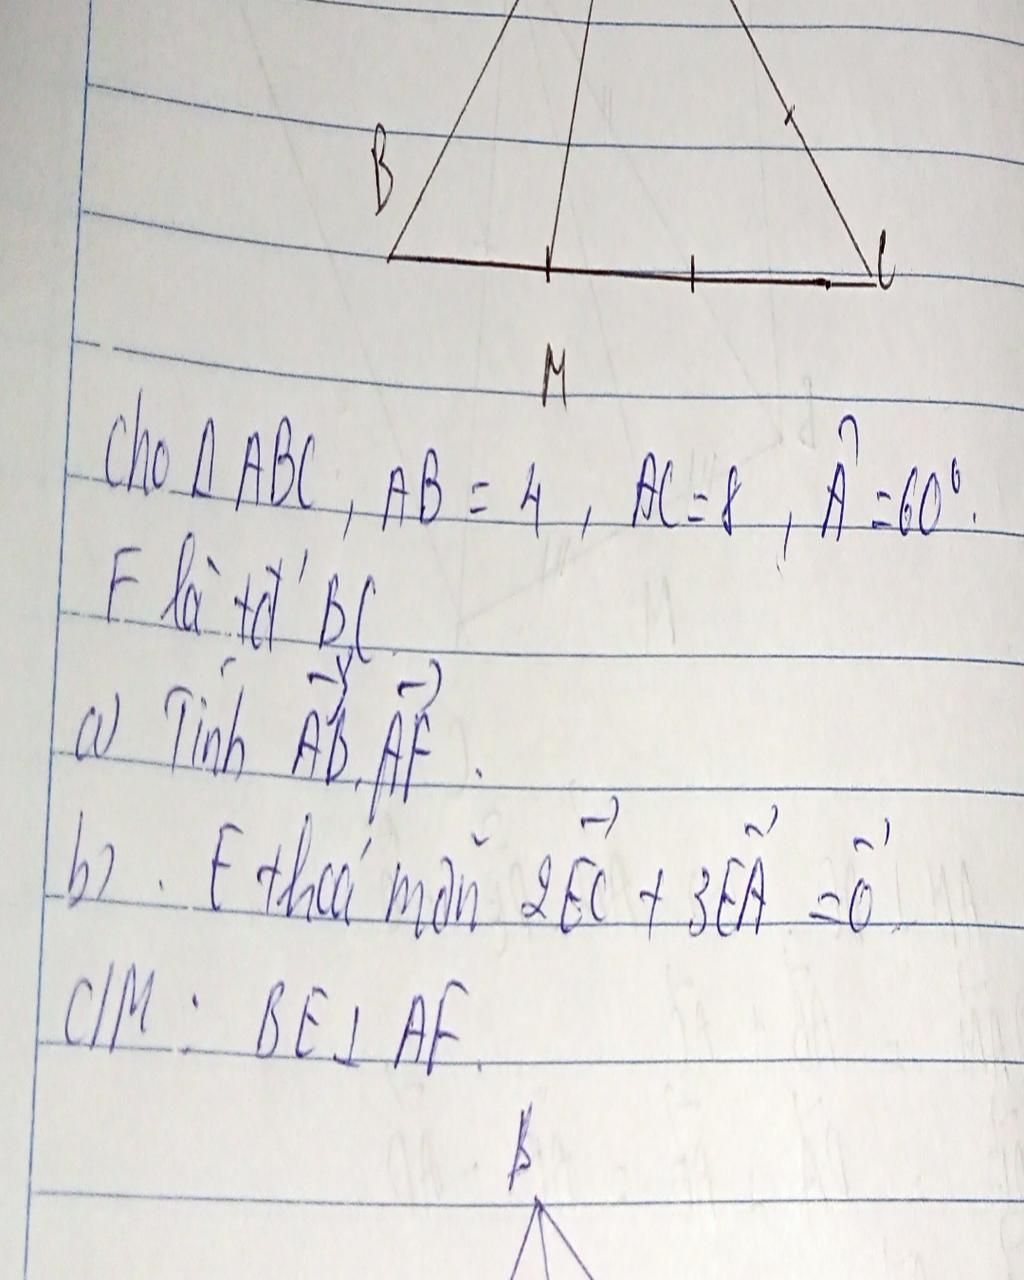 B
C
M
Cho Δ ABC, AB = 4, AC = 8, Â = 60⁰.
F là tđ' BC
a) Tính $\overrightarrow{AB}.\overrightarrow{AF}$.
b). E thoả mãn $2\overrightarrow{EC} + 3\overrightarrow{EA} = \vec{0}$
C/M: BE ⊥ AF.
B